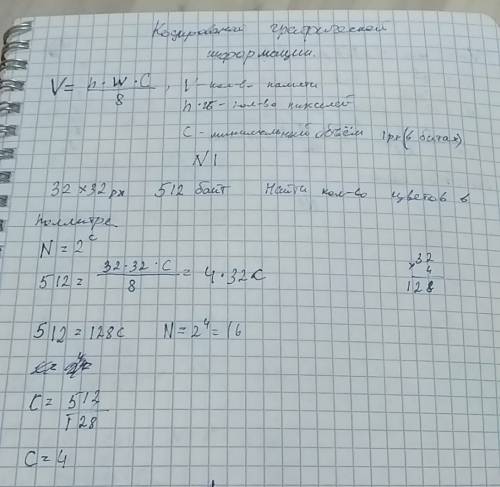 Кодирование графической
информации.
V = h·w·C / 8, V - кол-во памяти
h·w - кол-во пикселей
C - минимальный объём 1px (в битах)
N1
32×32px 512 байт Найти кол-во цветов в
паллитре
N = 2^c
512 = 32·32·C / 8 = 4·32C
32
×4
128
512 = 128C N = 2^4 = 16
C = 512 / 128
C = 4